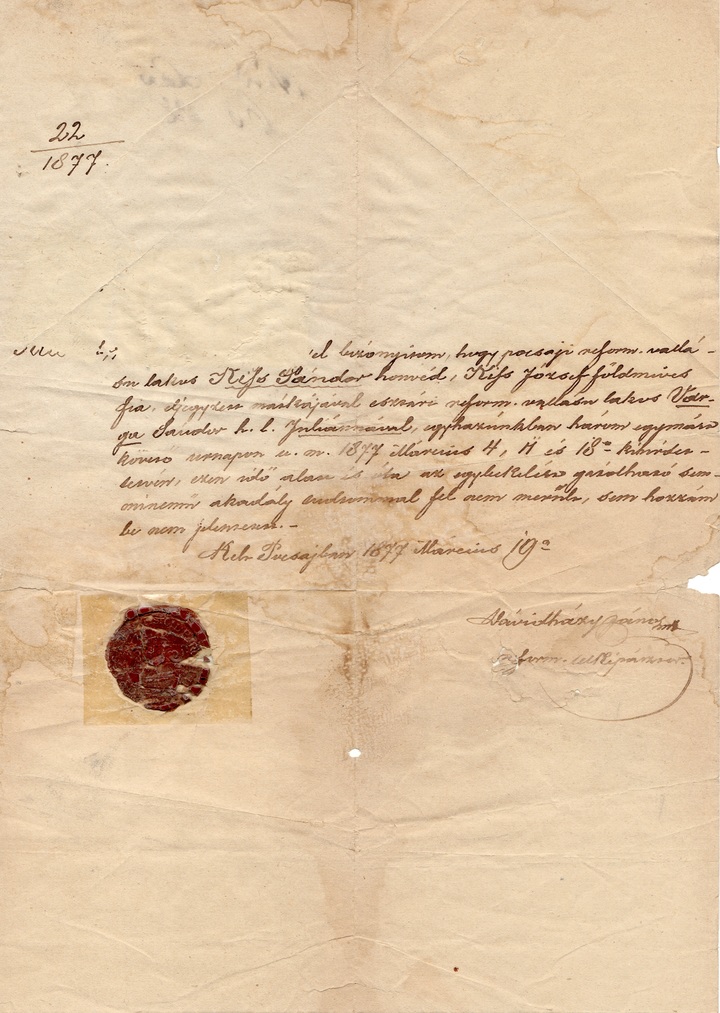 22
1877.
el bizonyitom, hogy pocsaji reform. vallá-
su lakos Kiss Sándor honvéd, Kiss József földmives
fia, eljegyzett mátkájával esztári reform. vallásu lakos Var-
ga Sándor h. l. Juliánnával, egyházunkban három egymást
követő ürnapon u. m. 1877 Március 4, 11 és 18án kihirdet-
tetvén, ezen idő alatt és óta az egybekelést gátolható sem-
minemű akadály tudtommal fel nem merült, sem hozzám
be nem jelentetett.-
Kelt Pocsajban 1877 Március 19én
Dávidházy János mk
reform. lelkipásztor.